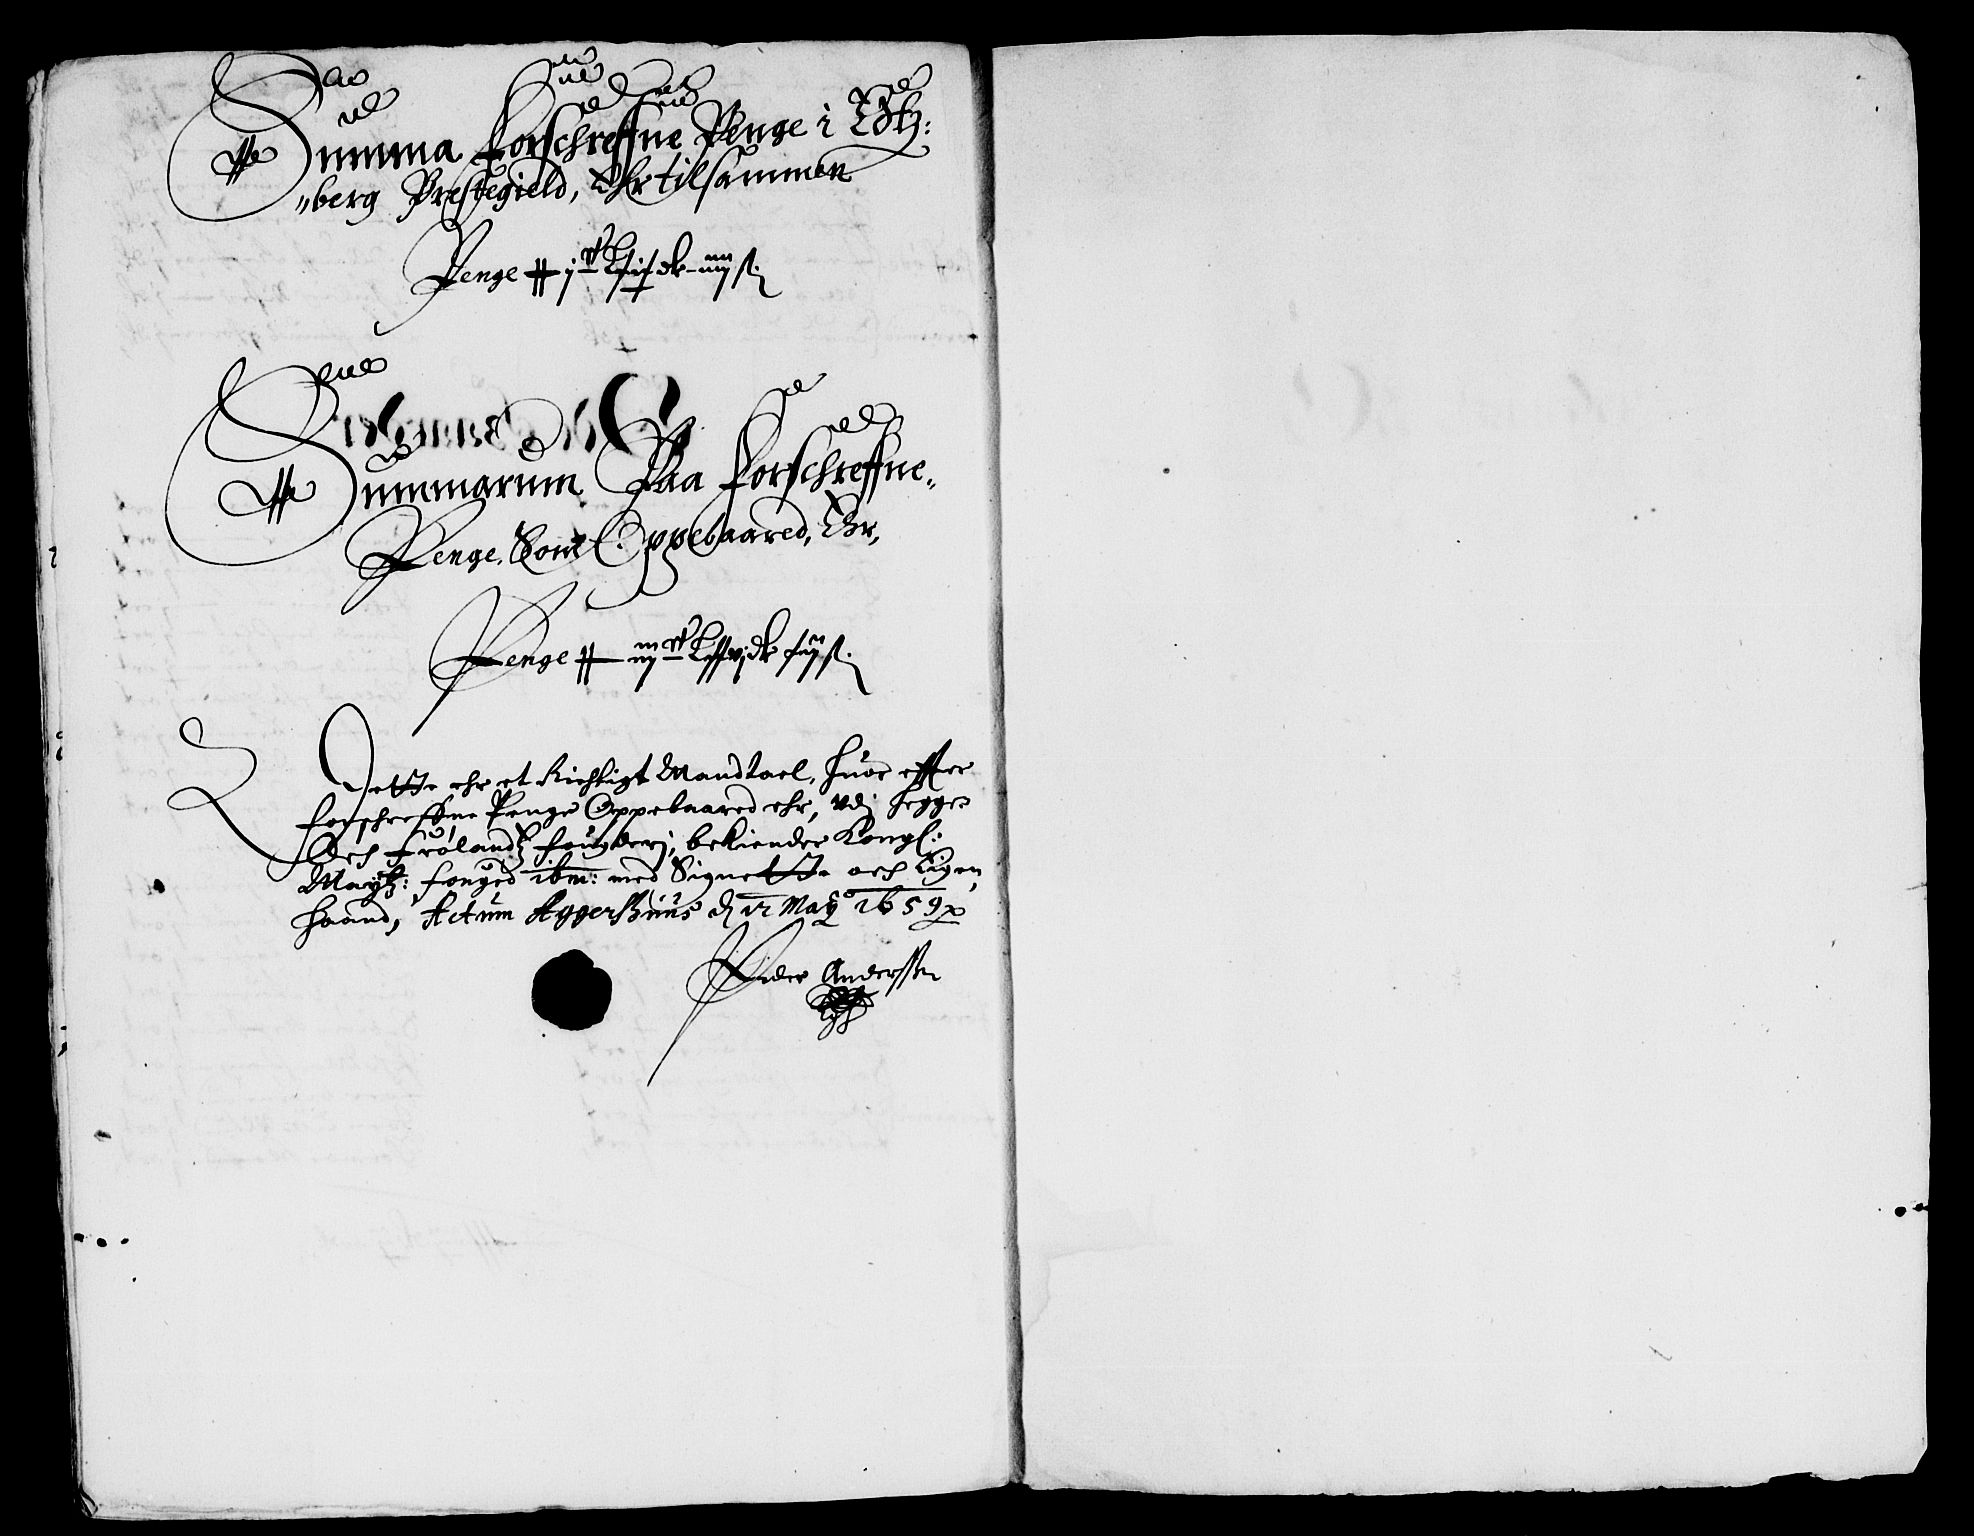 Summa forschreffne Penge i Edtz:
"berg Prestegield, Ehr tilsammen
Penge
Summarum Paa forschreffne,
Penge. Som Oppebaared, Ehr,
Penge
Dette ehr et Richtigt Mandtael, huor effter
forschreffne Penge Oppebaared ehr, vdj Heggen
Och Frølandtz fougderj, bekiender Kongl:
Maytz: fouged ibm: med Signette och Eigen
haand, Actum Aggershuus d 12 Maÿ 1659
Peder Anderssen